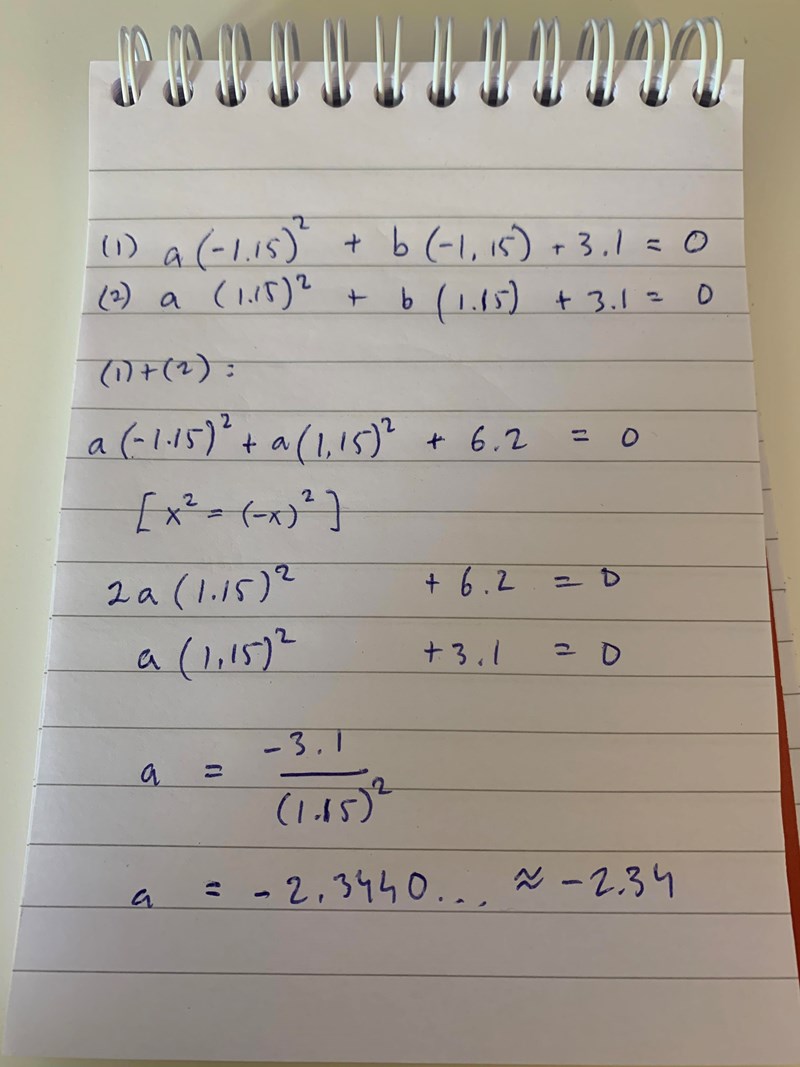 (1) a (-1.15)² + b (-1,15) + 3.1 = 0
(2) a (1.15)² + b (1.15) + 3.1 = 0
(1)+(2) :
a (-1.15)² + a (1,15)² + 6.2 = 0
[x² = (-x)²]
2a (1.15)² + 6.2 = 0
a (1,15)² + 3.1 = 0
a = -3.1 / (1.15)²
a = -2.3440... ≈ -2.34